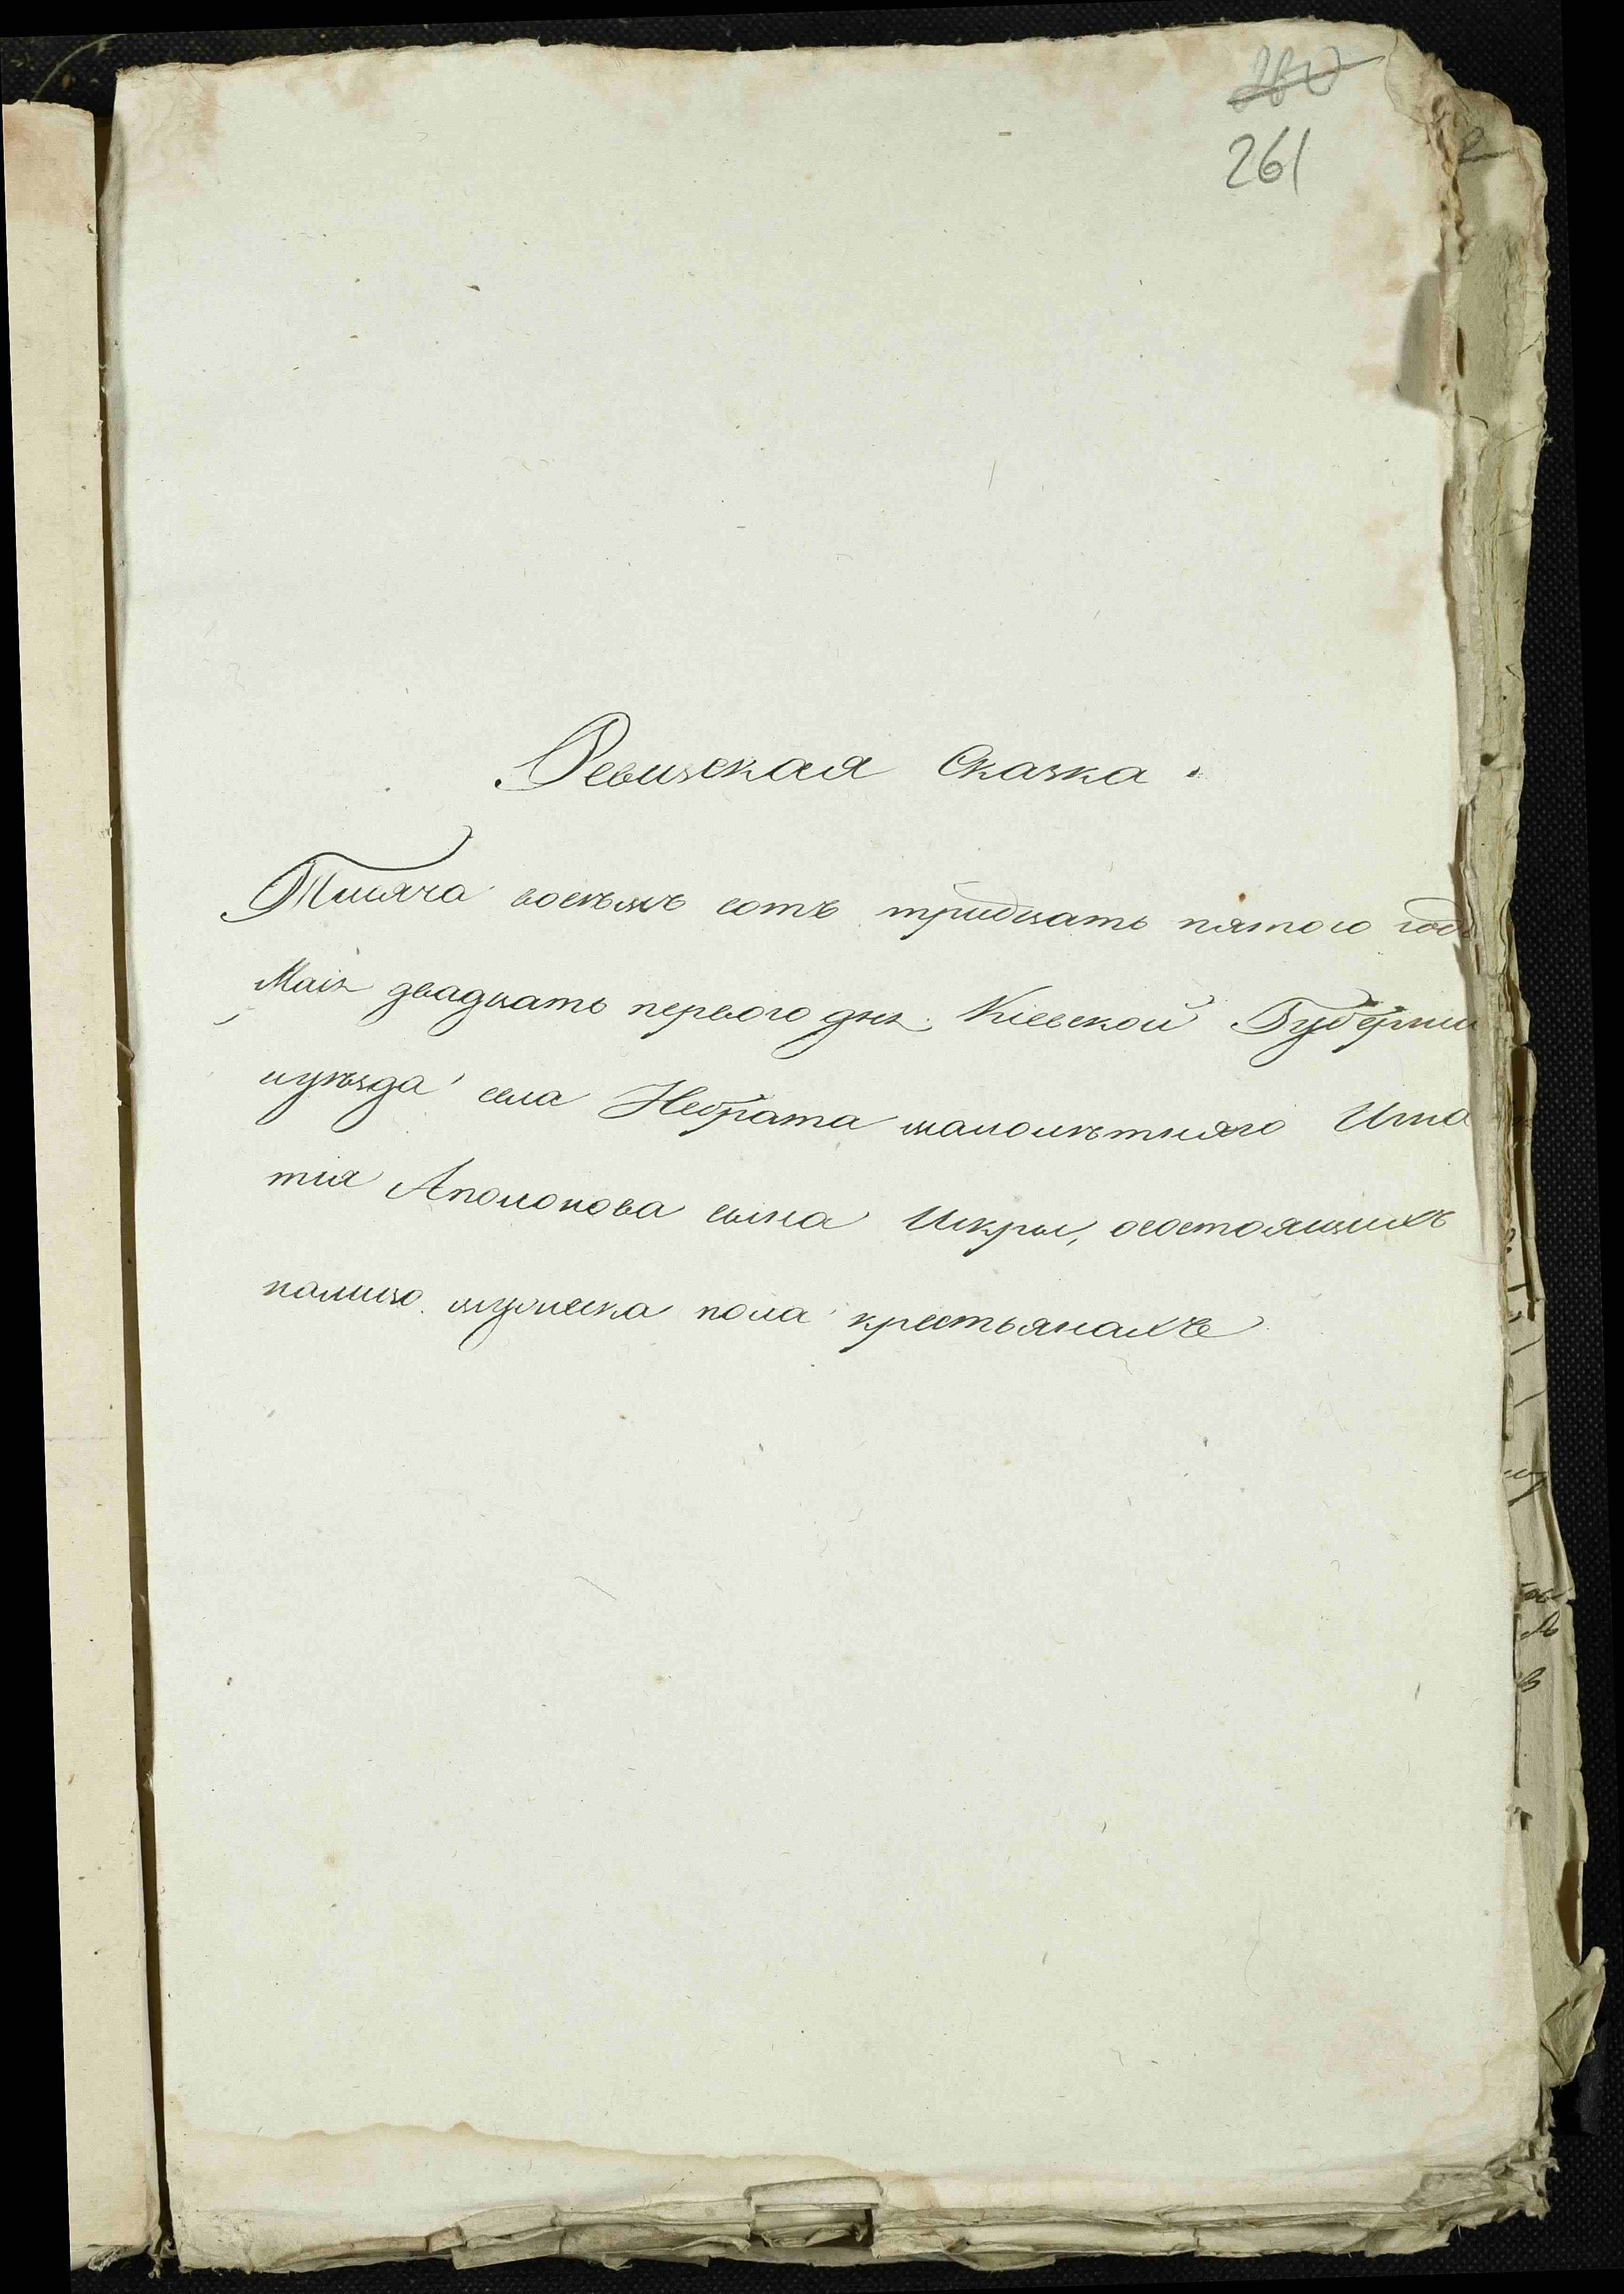 261
Ревизская Сказка.
Тысяча восемь сотъ тридцать пятого года
Маія двадцать первого дня. Кіевской Губерніи
иуѣзда села Небрата малолѣтняго Игна
тія Аполонова сына Искры, осостоящихъ
налицо мужеска пола крестьянахъ